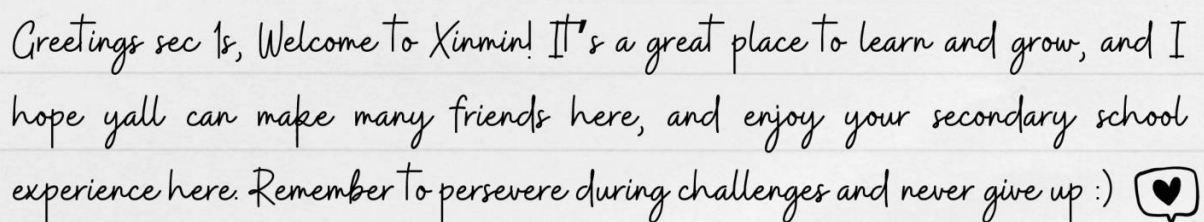 Greetings sec 1s, Welcome to Xinmin! It's a great place to learn and grow, and I
hope yall can make many friends here, and enjoy your secondary school
experience here. Remember to persevere during challenges and never give up :)